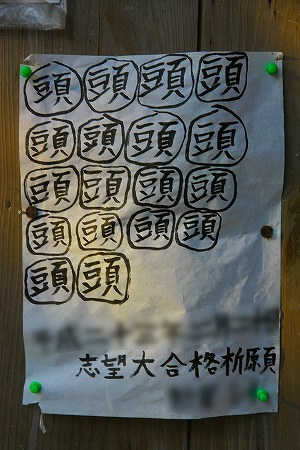 頭頭頭頭
頭頭頭頭
頭頭頭頭
頭頭頭頭
頭頭
志望大合格祈願